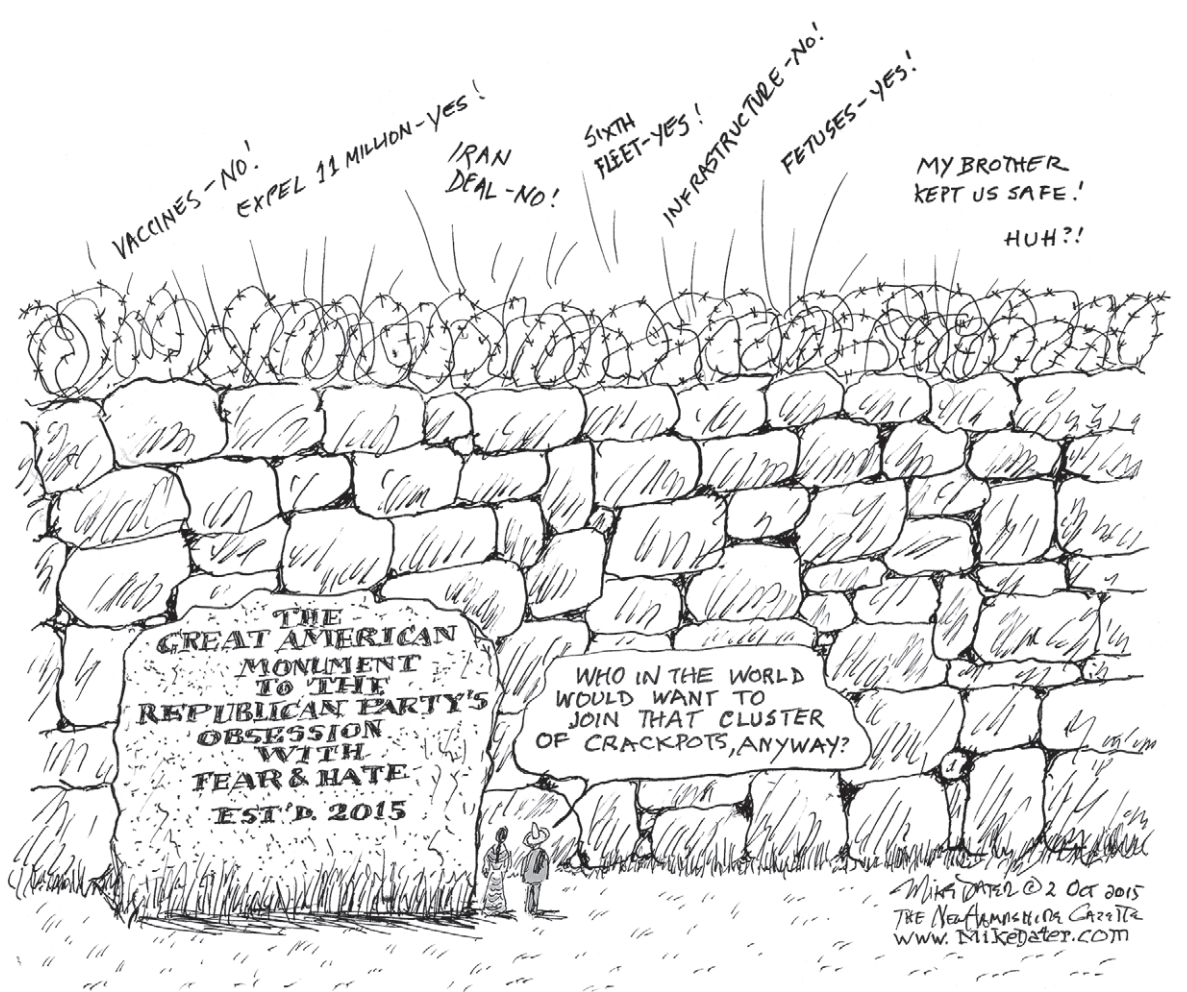 VACCINES-NO!
EXPEL 11 MILLION-YES!
IRAN
DEAL-NO!
SIXTH
FLEET-YES!
INFRASTRUCTURE-NO!
FETUSES-YES!
MY BROTHER
KEPT US SAFE!
HUH?!
THE
GREAT AMERICAN
MONUMENT
TO THE
REPUBLICAN PARTY'S
OBSESSION
WITH
FEAR & HATE
EST'D. 2015
WHO IN THE WORLD
WOULD WANT TO
JOIN THAT CLUSTER
OF CRACKPOTS, ANYWAY?
MIKE DATER © 2 OCT 2015
THE NEW HAMPSHIRE GAZETTE
WWW.MIKEDATER.COM